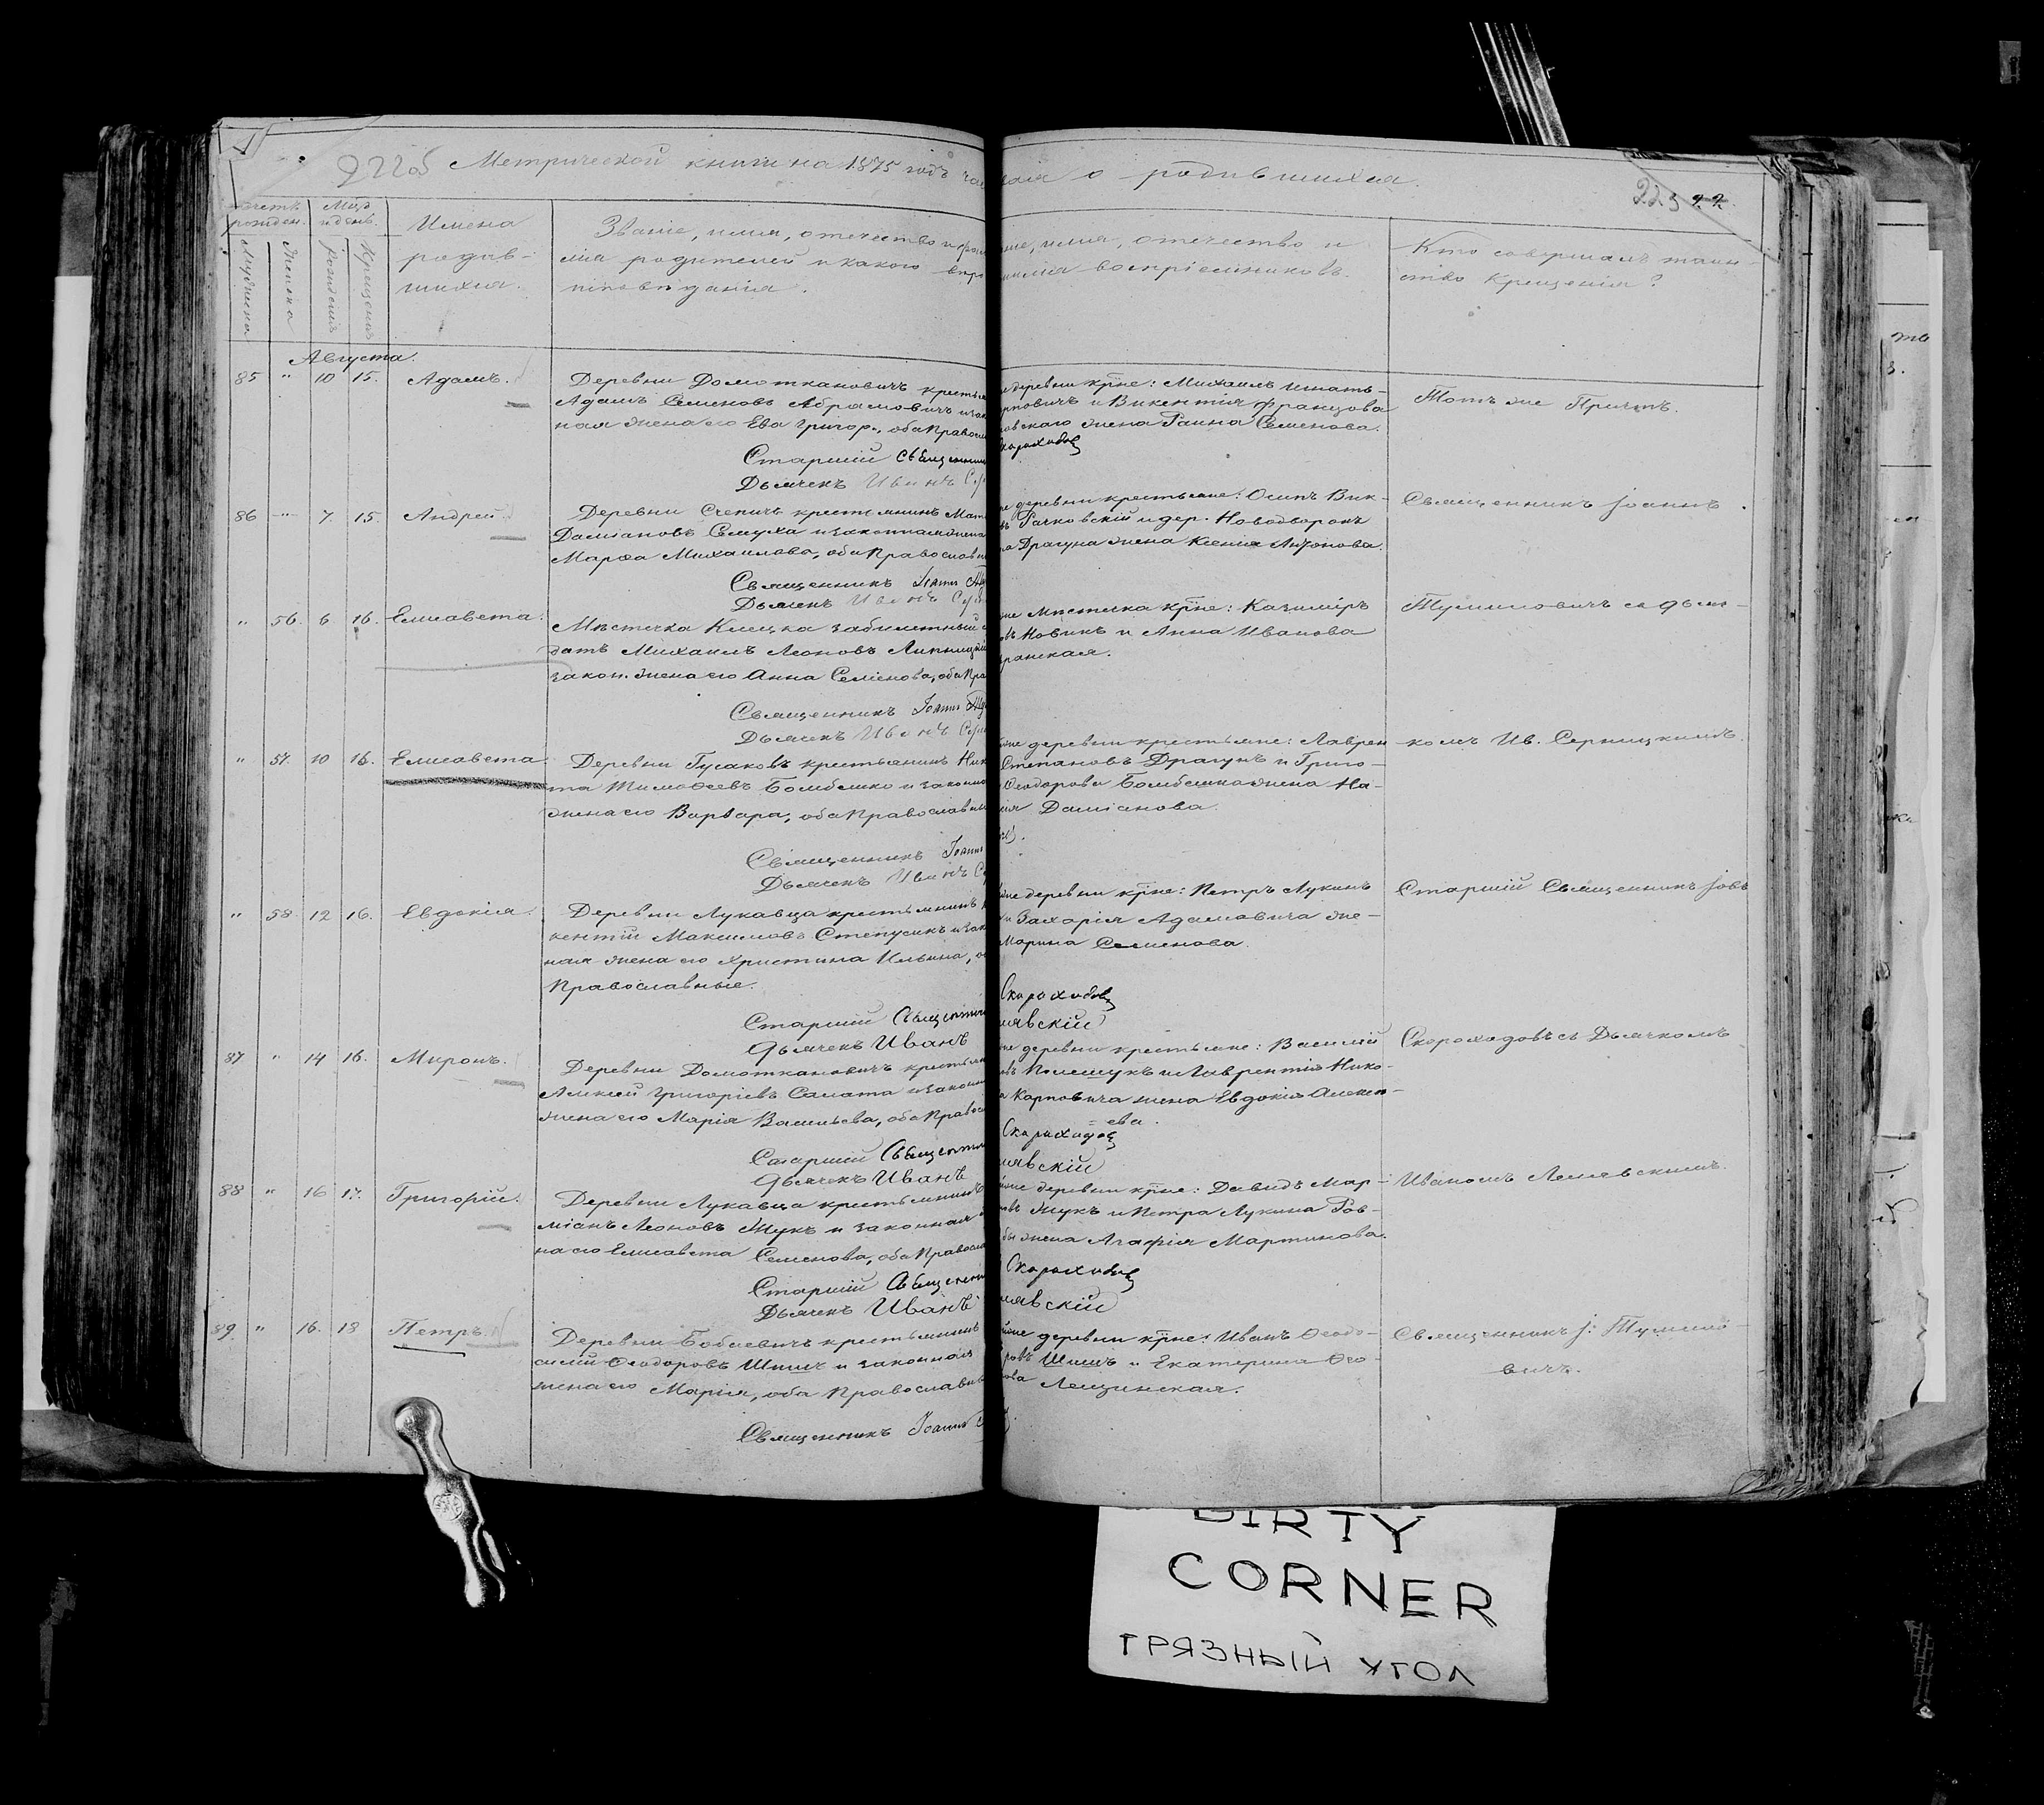 222об Метрической книги на 1875 годъ час
вая о родившихся.
223
Счетъ рожден.
Мѣс. и день.
Мужеска
Женска
Рожденія
Крещенія
Имена
родив-
шихся.
Званіе, имя, отчество и фам
лія родителей и какого вѣро
исповѣданія.
ніе, имя, отчество и
милія воспріемниковъ.
Кто совершалъ таин-
ство Крещенія?
Августа.
85 " 10 15. Адамъ.
Деревни Домоткановичъ крестья
Адамъ Семеновъ Абрамовичъ и зак
ная жена его Ева Григор., оба Правосл
Старшій Священни
Дьячекъ Иванъ Сер
же деревни кр̅не: Михаилъ Игнать-
рповичъ и Викентія Францова
овскаго жена Раина Семенова.
Скороходов
Тотъ же Причтъ.
86 " 7 15. Андрей.
Деревни Счепичъ крестьянинъ Мат
Даміановъ Семуха и законная жена
Марѳа Михаилова, оба Православн
Священникъ Іоаннъ
Дьячекъ Иванъ Сер
же деревни крестьяне: Осипъ Вик-
въ Рачковскій и дер. Новодворокъ
Драгуна жена Ксенія Антонова.
Священникъ Іоаннъ
" 56. 6 16. Елисавета.
Мѣстечка Клецка забилетный с
датъ Михаилъ Леоновъ Липницкій
закон. жена его Анна Семенова, оба Пра
Священникъ Іоаннъ
Дьячекъ Иванъ Сер
же мѣстечка кр̅не: Казиміръ
въ Новикъ и Анна Иванова
ранская.
Туминовичъ съ дьяч-
" 57. 10 16. Елисавета.
Деревни Гусаковъ крестьянинъ Ник
та Тимоѳеевъ Бомбешко и законна
жена его Варвара, оба Православн
Священникъ Іоаннъ
Дьячекъ Иванъ Се
же деревни крестьяне: Лаврен
Степановъ Драгунъ и Григо-
Ѳеодорова Бомбешко жена На-
лія Даміанова.
комъ Ив. Серницкимъ.
" 58. 12 16. Евдокія.
Деревни Лукавца крестьянинъ
кентій Максимовъ Степусикъ и зак
ная жена его Христина Ильина, о
Православные.
Старшій Священни
Дьячекъ Иванъ
же деревни кр̅не: Петръ Лукинъ
и Захарія Адамовича же-
Марина Семенова.
Скороходов
лявскій
Старшій Священникъ Іовъ
87 " 14 16. Миронъ.
Деревни Домоткановичъ крестьян
Алексій Григоріевъ Салата и закон
жена его Марія Васильева, оба Правос
Старшій Священни
Дьячекъ Иванъ
же деревни крестьяне: Василій
въ Полещукъ и Лаврентія Нико-
а Карповича жена Евдокія Алексѣ-
= ева.
Скороходов
лявскій
Скороходовъ съ Дьячкомъ
88 " 16 17. Григорій.
Деревни Лукавца крестьянинъ
міанъ Леоновъ Жукъ и законная
на его Елисавета Семенова, оба Правосла
Старшій Священни
Дьячекъ Иванъ
же деревни кр̅не: Давидъ Мар-
въ Жукъ и Петра Лукина Раб-
бы жена Агафія Мартинова.
Скороходов
лявскій
Иваномъ Лелявскимъ.
89. " 16. 18 Петръ.
Деревни Бабаевичъ крестьянинъ
силій Ѳеодоровъ Шишъ и законная
жена его Марія, оба Православн
Священникъ Іоаннъ
же деревни кр̅не: Иванъ Ѳеодо-
ровъ Шишъ и Екатерина Ѳео-
ова Лещинская.
Священникъ І: Тумино-
вичъ.
DIRTY
CORNER
ГРЯЗНЫЙ УГОЛ